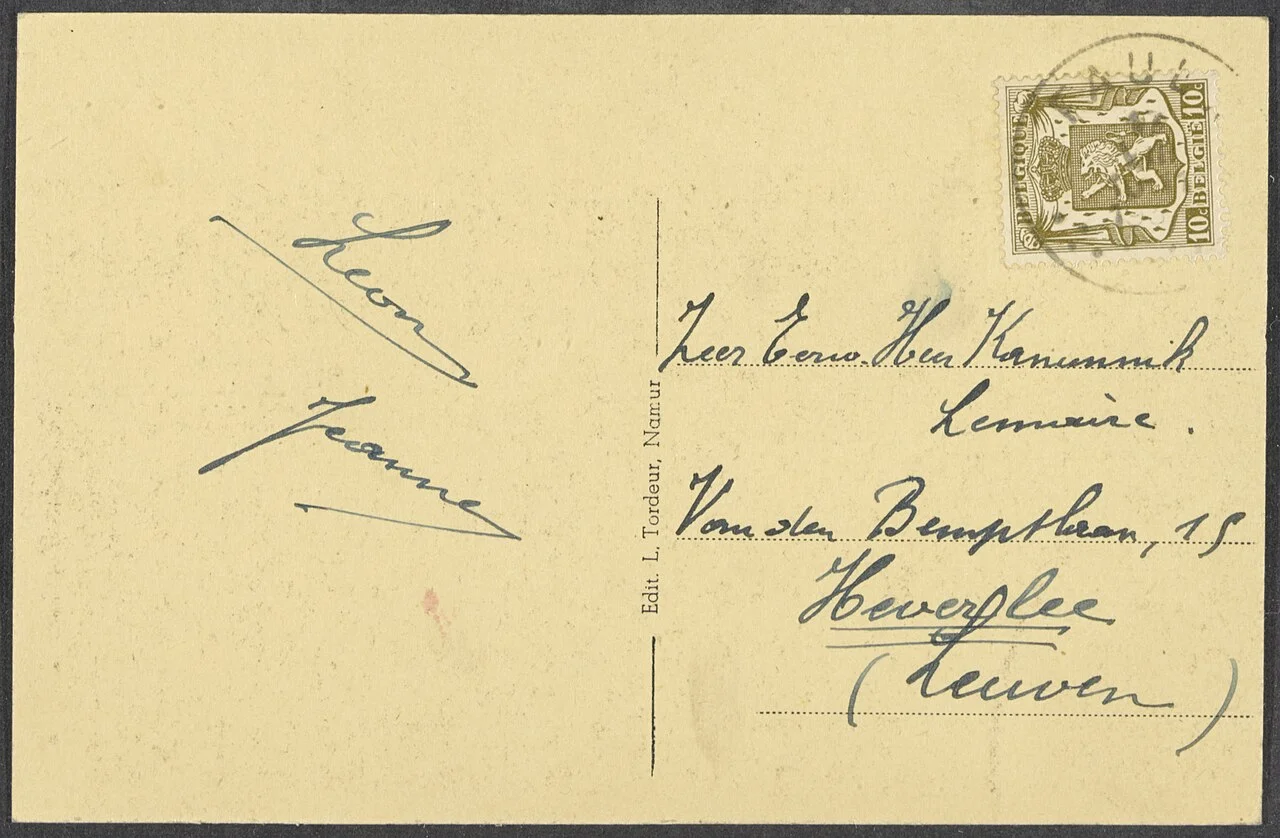 Leon
Jeanne
Edit. L. Tordeur, Namur
BELGIQUE
10c BELGIË 10c
Zeer Eerw. Heer Kanunnik
Lemaire.
Van den Bemptlaan, 15
Heverlee
(Leuven)